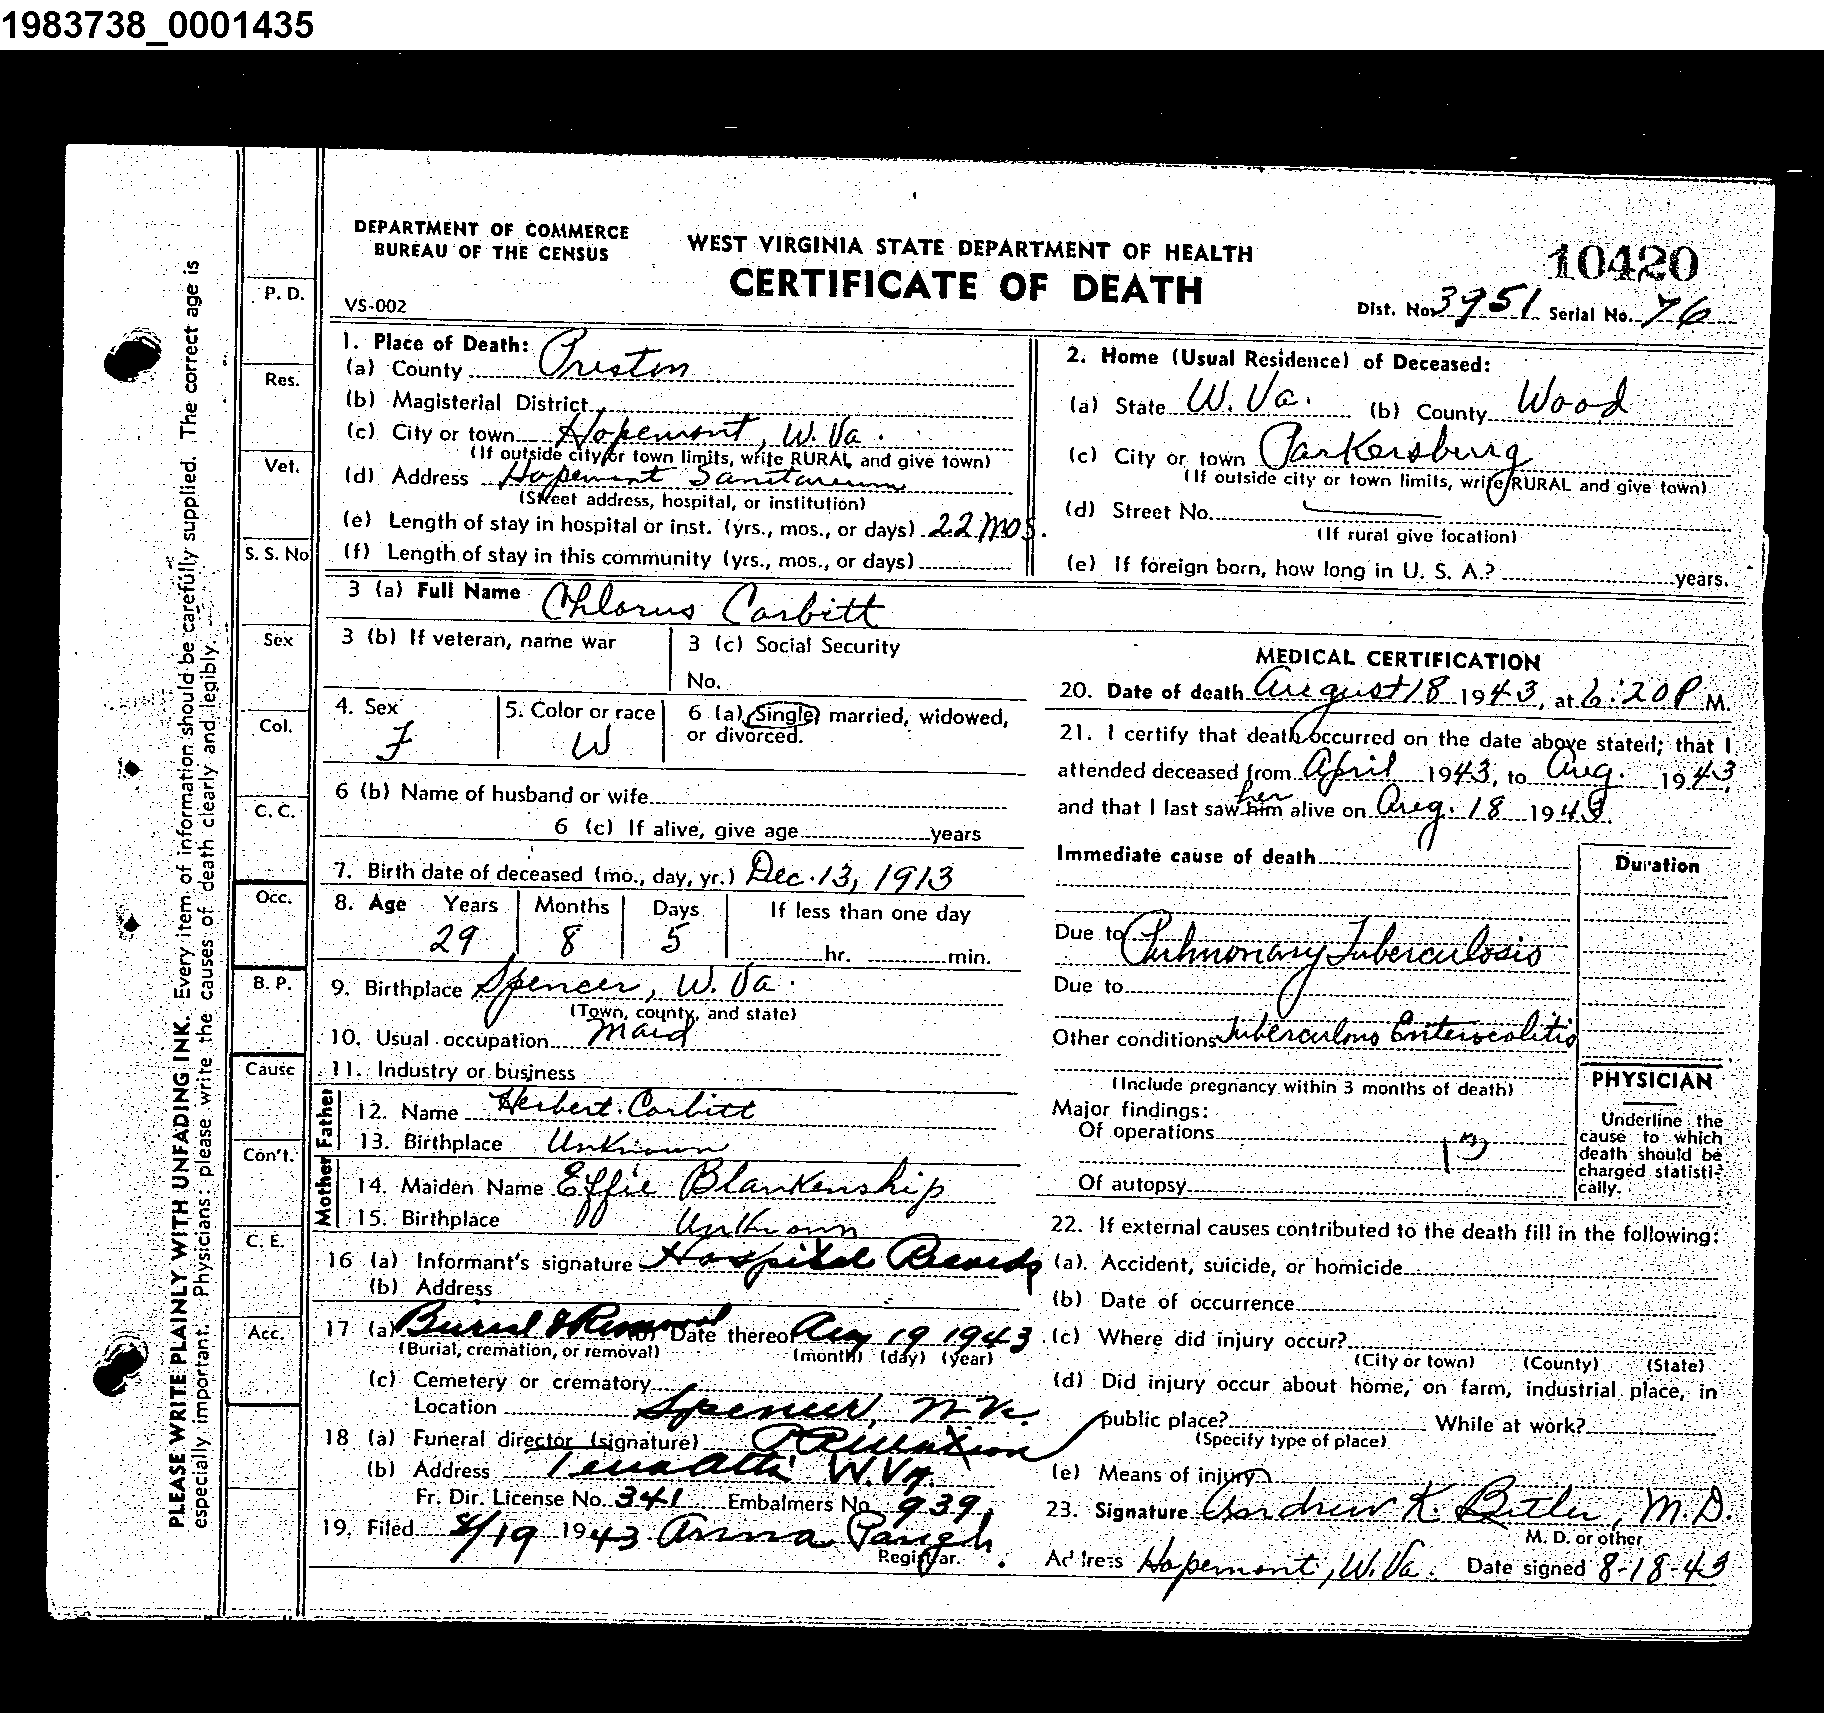 1983738_0001435
DEPARTMENT OF COMMERCE
BUREAU OF THE CENSUS
WEST VIRGINIA STATE DEPARTMENT OF HEALTH
CERTIFICATE OF DEATH
10420
VS-002
Dist. No. 3951 Serial No. 76
PLEASE WRITE PLAINLY WITH UNFADING INK. Every item of information should be carefully supplied. The correct age is
especially important. Physicians: please write the causes of death clearly and legibly.
P. D.
Res.
Vet.
S. S. No
Sex
Col.
C. C.
Occ.
B. P.
Cause
Con't.
C. E.
Acc.
1. Place of Death:
(a) County Preston
(b) Magisterial District
(c) City or town Hopemont, W. Va.
(If outside city or town limits, write RURAL and give town)
(d) Address Hopemont Sanitarium
(Street address, hospital, or institution)
(e) Length of stay in hospital or inst. (yrs., mos., or days) 22 mos.
(f) Length of stay in this community (yrs., mos., or days)
2. Home (Usual Residence) of Deceased:
(a) State W. Va. (b) County Wood
(c) City or town Parkersburg
(If outside city or town limits, write RURAL and give town)
(d) Street No.
(If rural give location)
(e) If foreign born, how long in U. S. A.? years.
3 (a) Full Name Chlorus Corbitt
3 (b) If veteran, name war
3 (c) Social Security
No.
4. Sex
F
5. Color or race
W
6 (a) Single, married, widowed,
or divorced.
6 (b) Name of husband or wife
6 (c) If alive, give age years
7. Birth date of deceased (mo., day, yr.) Dec. 13, 1913
8. Age Years Months Days If less than one day
29 8 5 hr. min.
9. Birthplace Spencer, W. Va.
(Town, county, and state)
10. Usual occupation Maid
11. Industry or business
Father
12. Name Herbert Corbitt
13. Birthplace Unknown
Mother
14. Maiden Name Effie Blankenship
15. Birthplace Unknown
16 (a) Informant's signature Hospital Records
(b) Address
17 (a) Burial & Removal (b) Date thereof Aug 19 1943
(Burial, cremation, or removal) (month) (day) (year)
(c) Cemetery or crematory
Location Spencer, W. Va.
18 (a) Funeral director (signature)
(b) Address Terra Alta W. Va.
Fr. Dir. License No. 341 Embalmers No. 939
19. Filed 8/19 1943 Anna Paugh
Registrar.
MEDICAL CERTIFICATION
20. Date of death August 18 1943, at 6:20 P M.
21. I certify that death occurred on the date above stated; that I
attended deceased from April 1943, to Aug. 1943
and that I last saw him her alive on Aug. 18 1943.
Immediate cause of death
Duration
Due to Pulmonary Tuberculosis
Due to
Other conditions Tuberculous Enterocolitis
(Include pregnancy within 3 months of death)
Major findings:
Of operations
13
Of autopsy
PHYSICIAN
Underline the
cause to which
death should be
charged statisti-
cally.
22. If external causes contributed to the death fill in the following:
(a). Accident, suicide, or homicide
(b) Date of occurrence
(c) Where did injury occur?
(City or town) (County) (State)
(d) Did injury occur about home, on farm, industrial place, in
public place? While at work?
(Specify type of place)
(e) Means of injury
23. Signature Andrew K. Butler, M.D.
M. D. or other
Address Hopemont, W. Va. Date signed 8-18-43